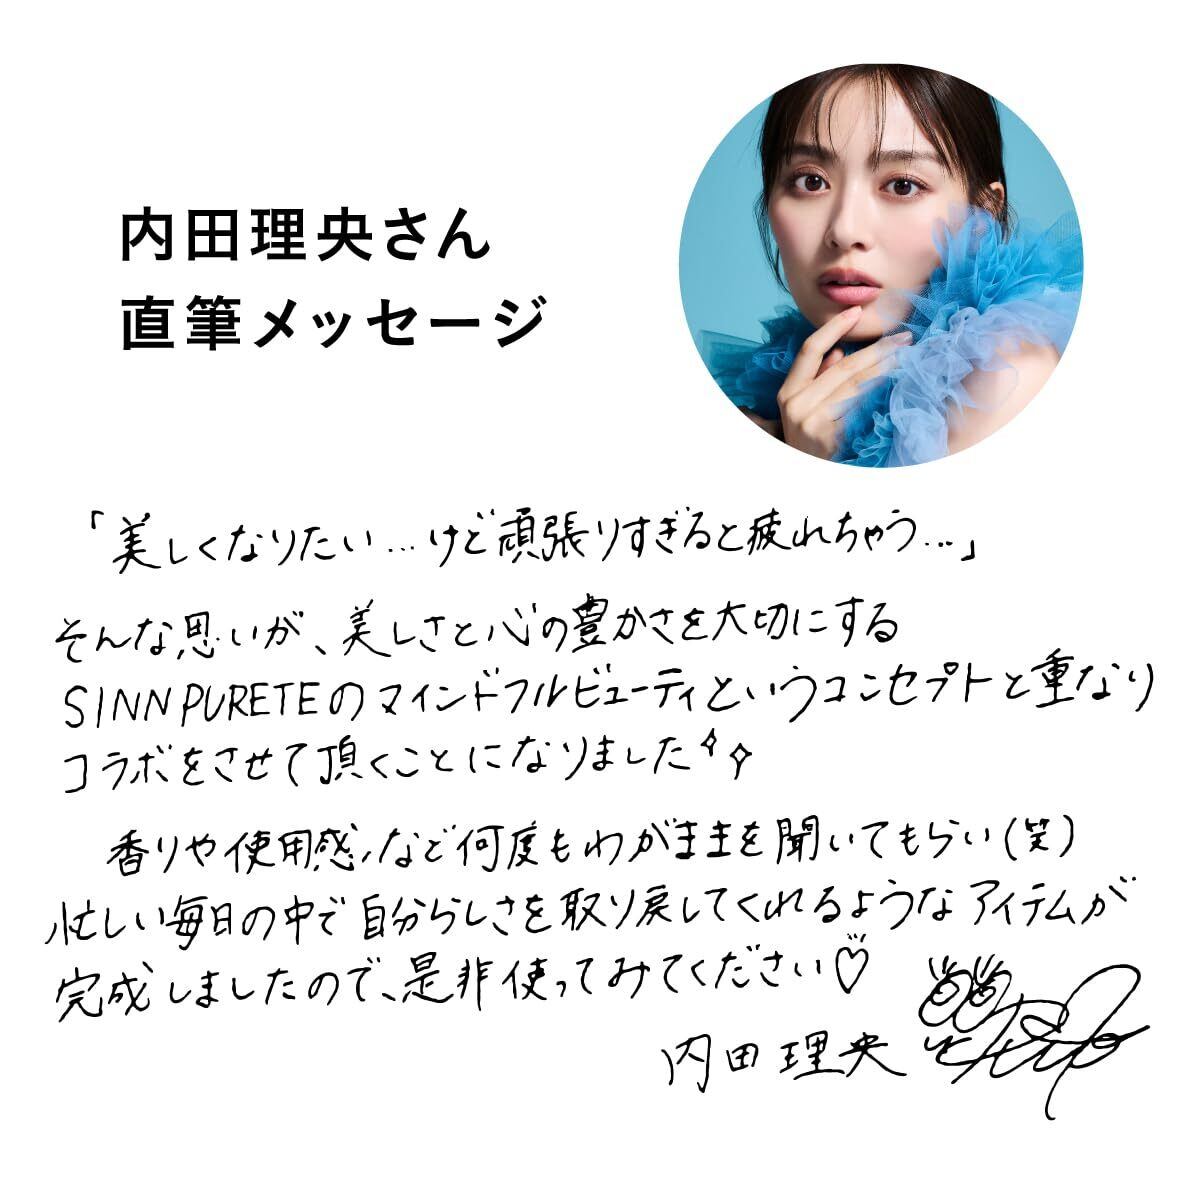 内田理央さん
直筆メッセージ
「美しくなりたい…けど頑張りすぎると疲れちゃう…」
そんな思いが、美しさと心の豊かさを大切にする
SINN PURETEのマインドフルビューティというコンセプトと重なり
コラボをさせて頂くことになりました
香りや使用感、など何度もわがままを聞いてもらい(笑)
忙しい毎日の中で自分らしさを取り戻してくれるようなアイテムが
完成しましたので、是非使ってみてください♡
内田理央